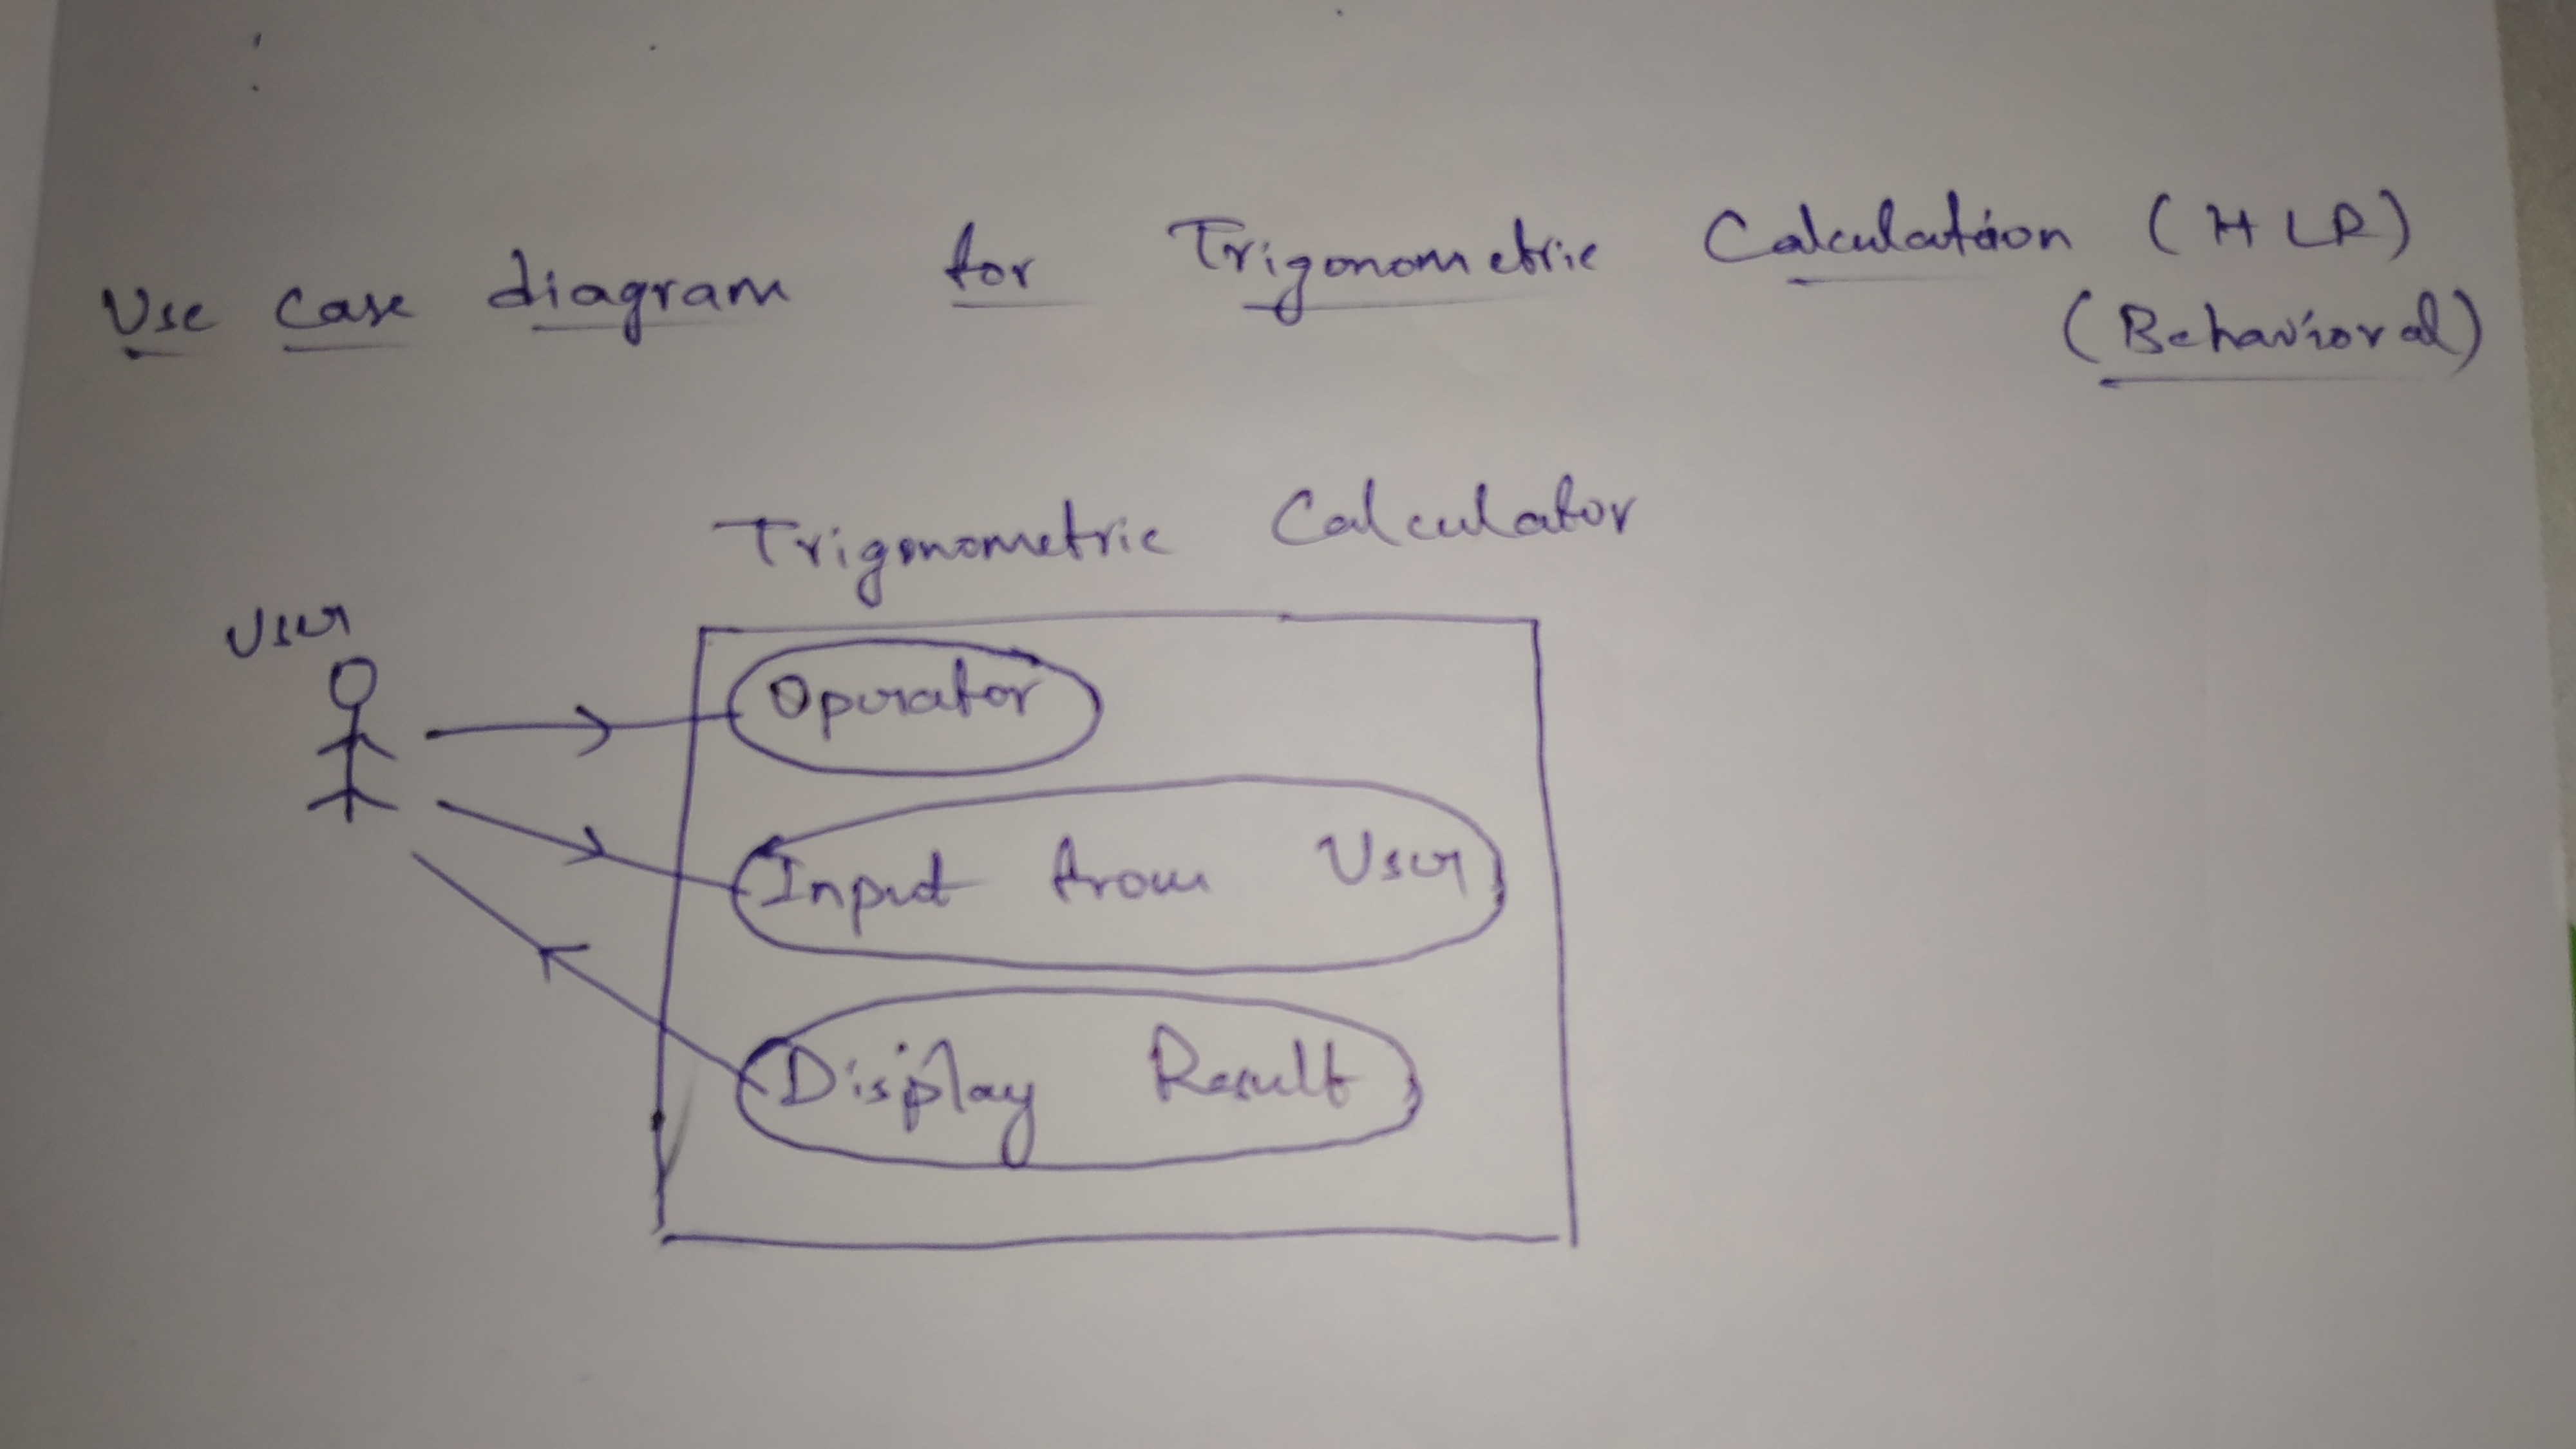 Use Case diagram for Trigonometric Calculation (HLR)
(Behavioral)
Trigonometric Calculator
User
Operator
Input from User
Display Result